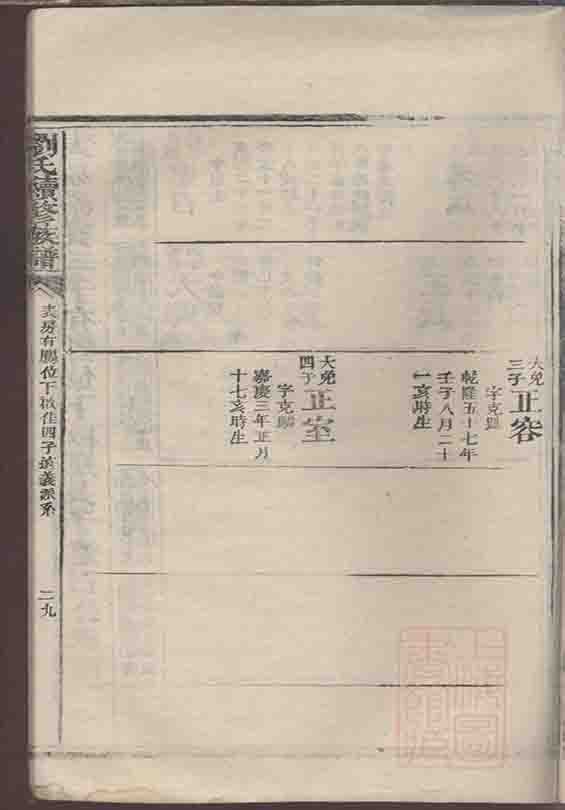 大免
三子
正容
字克
乾隆五十七年
壬子八月二十
一亥時生
大免
四子
正室
字克
嘉慶三年正月
十七亥時生
劉氏續修族譜
房有鵬位下 佳四子 義派系
二九
上海圖
書館藏